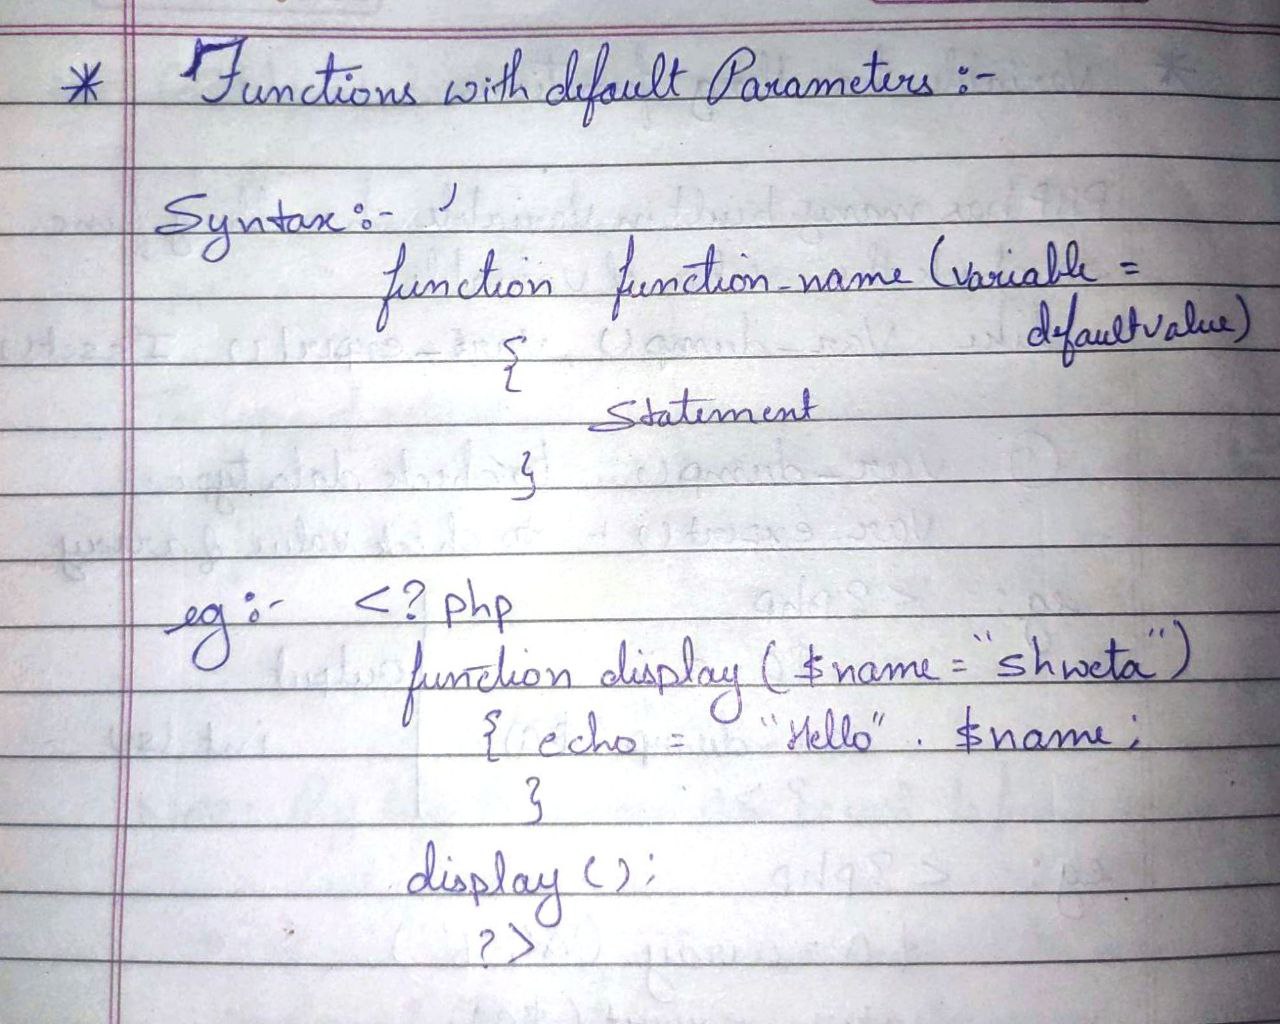 * Functions with default Parameters :-
Syntax :-
function function-name (variable =
defaultvalue)
{
Statement
}
eg :- <? php
function display ( $name = "shweta")
{ echo = "Hello" . $name ;
}
display () ;
?>